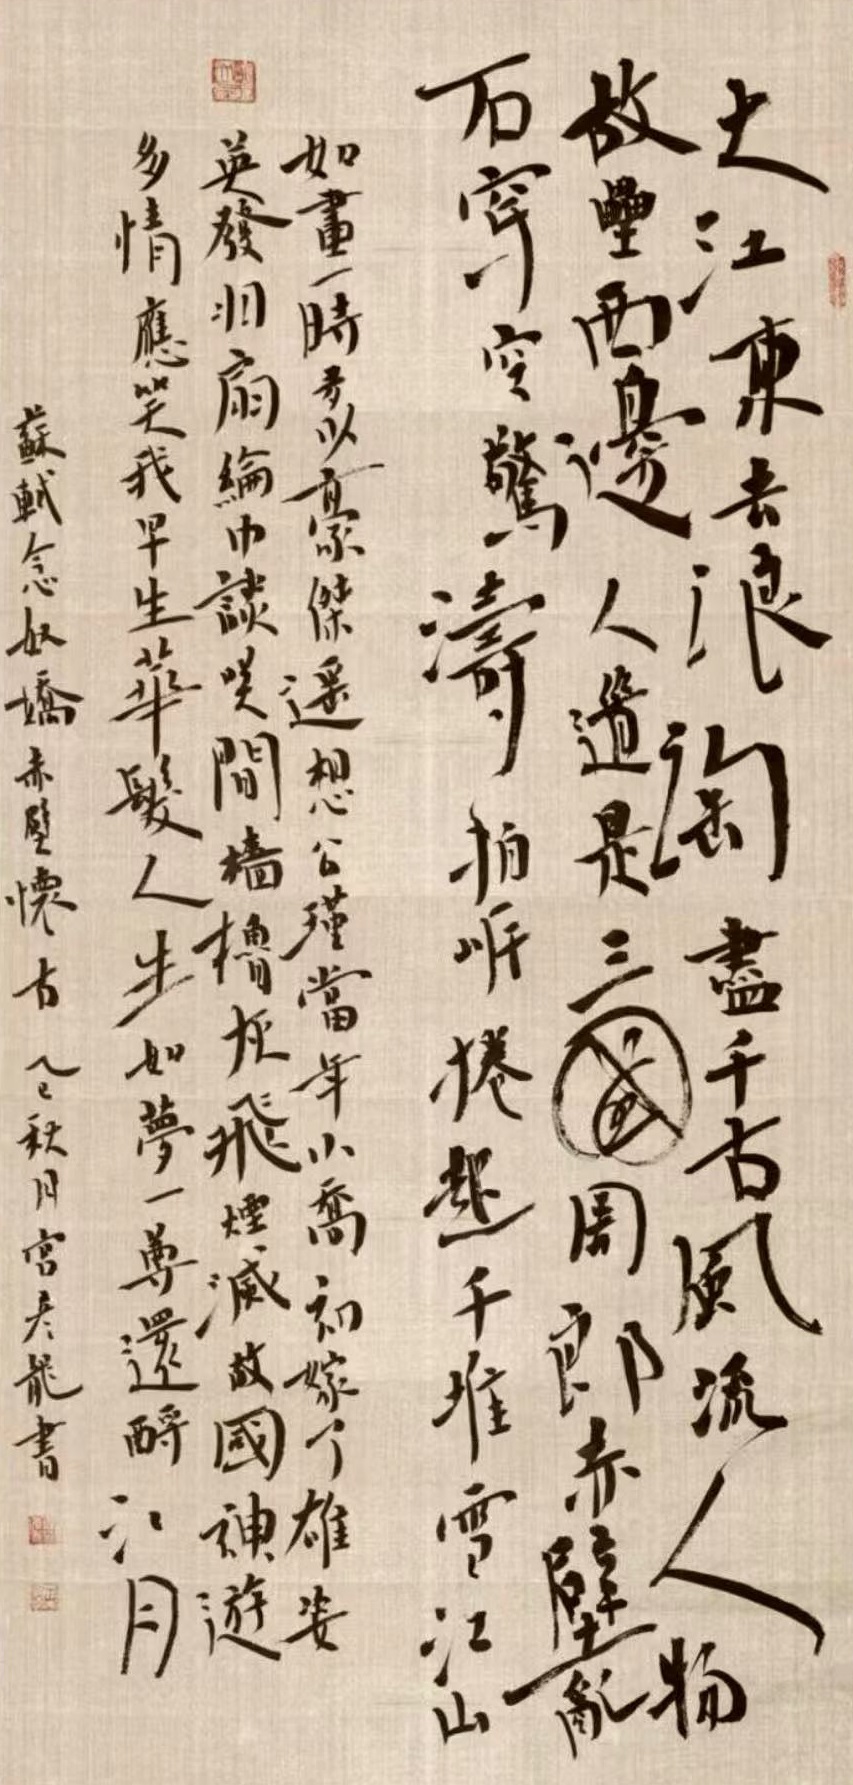 大江東去浪淘盡千古風流人物
故壘西邊人道是三國周郎赤壁亂
石穿空驚濤拍岸捲起千堆雪江山
如畫一時多少豪傑遥想公瑾當年小喬初嫁了雄姿
英發羽扇綸巾談笑間檣櫓灰飛煙滅故國神遊
多情應笑我早生華髮人生如夢一尊還酹江月
蘇軾念奴嬌赤壁懷古乙巳秋月宫彦龍書